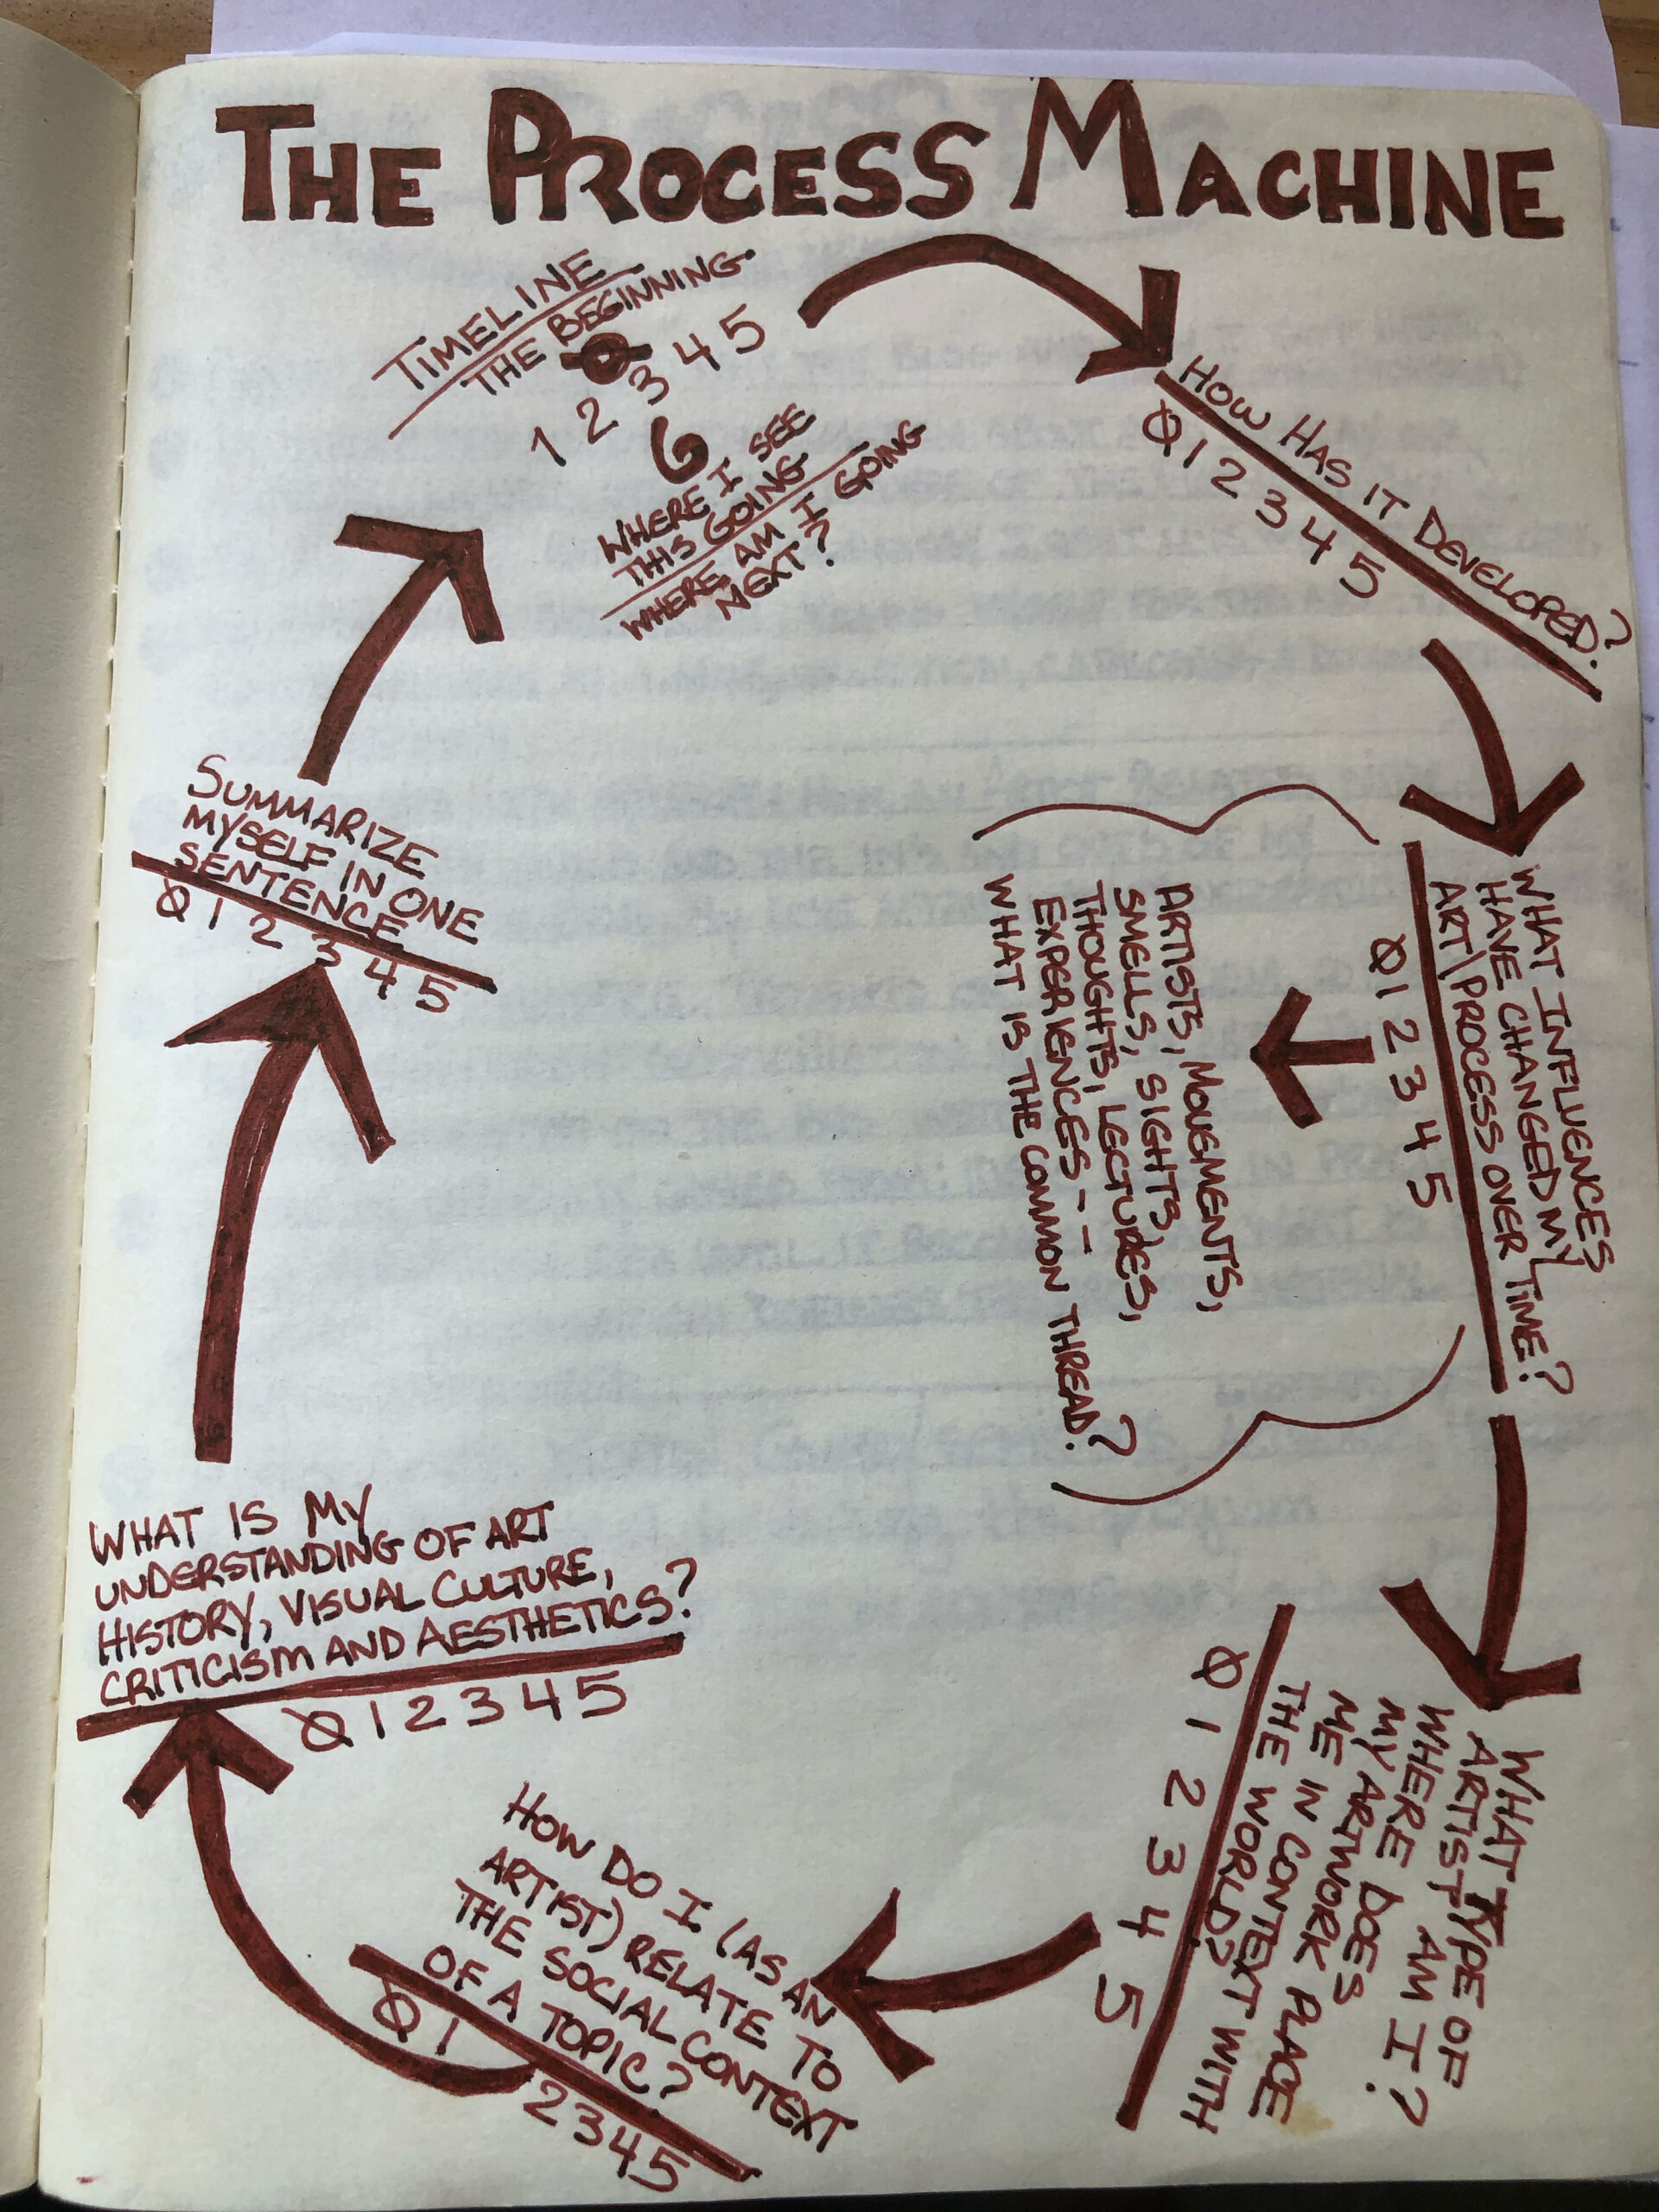 THE PROCESS MACHINE
TIMELINE
THE BEGINNING
0
1 2 3 4 5
6
WHERE I SEE
THIS GOING
WHERE AM I GOING
NEXT?
HOW HAS IT DEVELOPED?
0 1 2 3 4 5
WHAT INFLUENCES
HAVE CHANGED MY
ART\PROCESS OVER TIME?
0 1 2 3 4 5
ARTISTS, MOVEMENTS,
SMELLS, SIGHTS,
THOUGHTS, LECTURES,
EXPERIENCES - -
WHAT IS THE COMMON THREAD?
WHAT TYPE OF
ARTIST AM I?
WHERE DOES
MY ARTWORK PLACE
ME IN CONTEXT WITH
THE WORLD?
0 1 2 3 4 5
HOW DO I (AS AN
ARTIST) RELATE TO
THE SOCIAL CONTEXT
OF A TOPIC?
0 1 2 3 4 5
WHAT IS MY
UNDERSTANDING OF ART
HISTORY, VISUAL CULTURE,
CRITICISM AND AESTHETICS?
0 1 2 3 4 5
SUMMARIZE
MYSELF IN ONE
SENTENCE
0 1 2 3 4 5